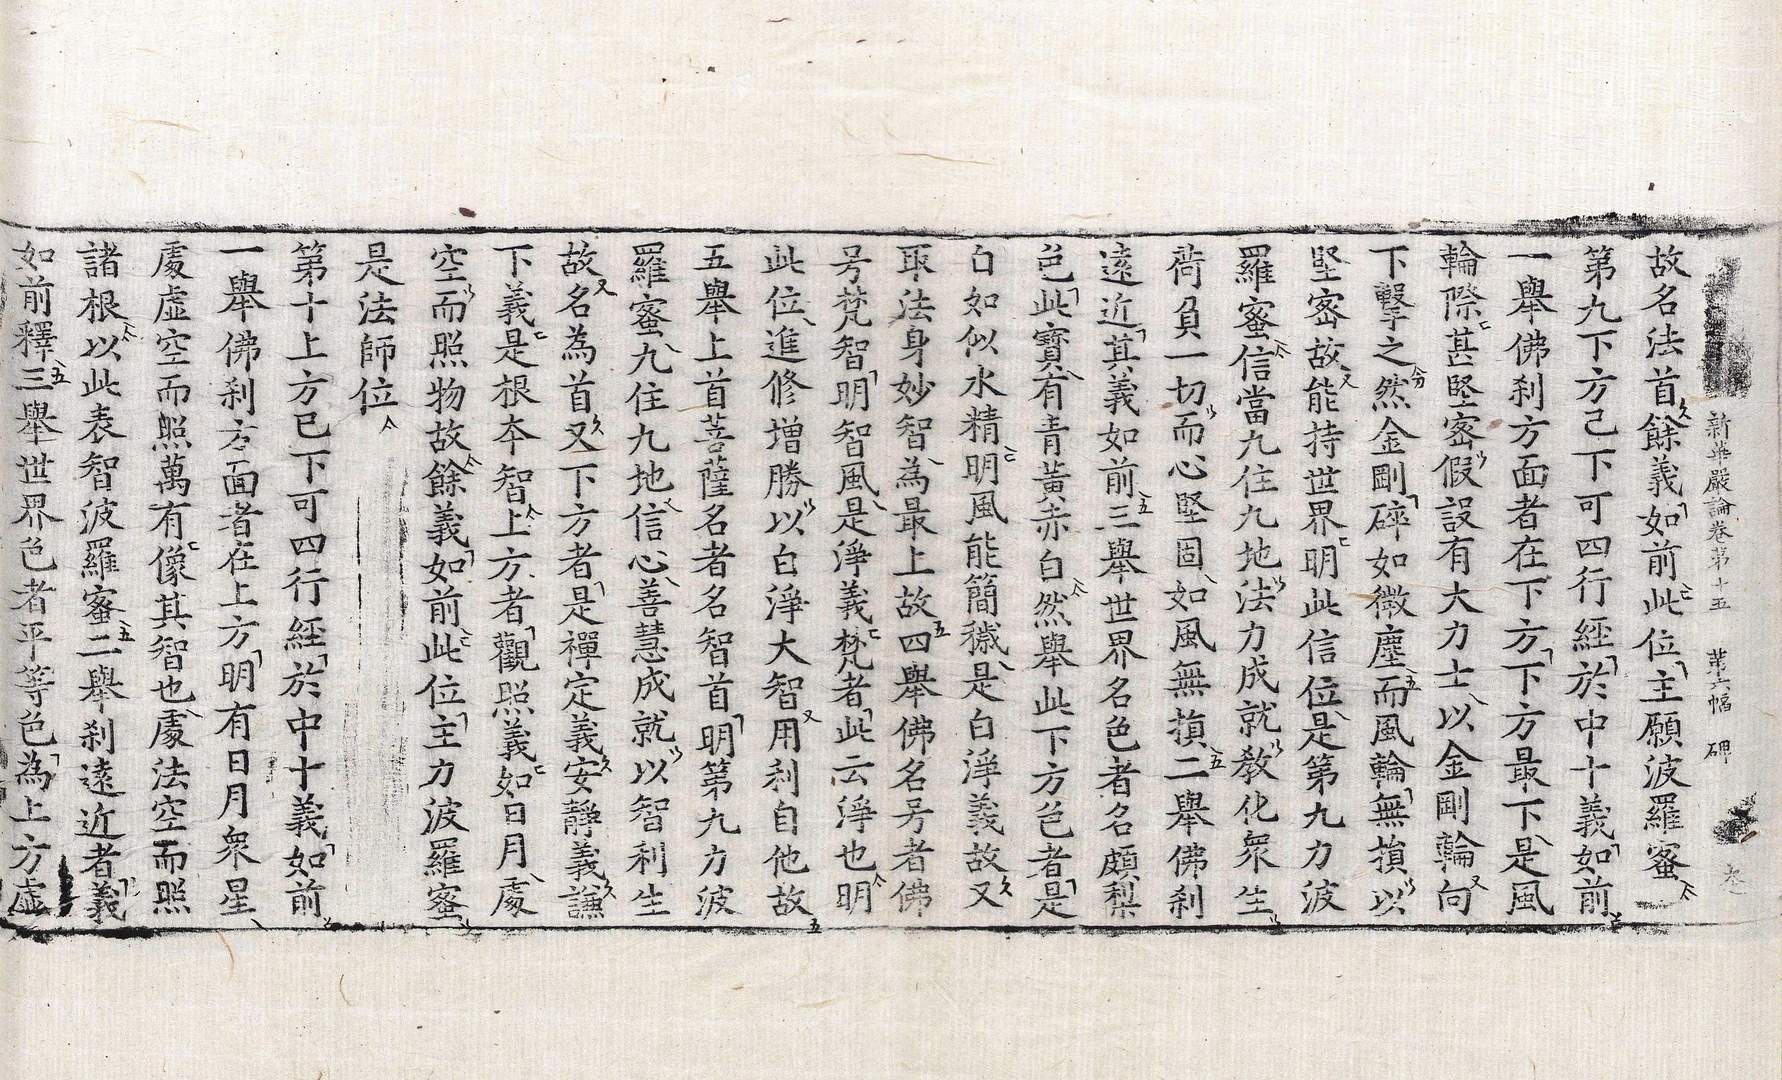 新華嚴論卷第十五 第六幅 碑
故名法首餘義如前此位主願波羅蜜
第九下方已下可四行經於中十義如前
一舉佛刹方面者在下方下方最下是風
輪際甚堅密假設有大力士以金剛輪向
下擊之然金剛碎如微塵而風輪無損以
堅密故能持世界明此信位是第九力波
羅蜜信當九住九地法力成就教化衆生
荷負一切而心堅固如風無損二舉佛刹
遠近其義如前三舉世界名色者名頗梨
色此寶有青黃赤白然舉此下方色者是
白如似水精明風能簡穢是白淨義故又
取法身妙智為最上故四舉佛名号者佛
号梵智明智風是淨義梵者此云淨也明
此位進修增勝以白淨大智用利自他故
五舉上首菩薩名者名智首明第九力波
羅蜜九住九地信心善慧成就以智利生
故名為首又下方者是禪定義安靜義謙
下義是根本智上方者觀照義如日月處
空而照物故餘義如前此位主力波羅蜜
是法師位
第十上方已下可四行經於中十義如前
一舉佛刹方面者在上方明有日月衆星
處虛空而照萬有像其智也處法空而照
諸根以此表智波羅蜜二舉刹遠近者義
如前釋三舉世界色者平等色為上方虛